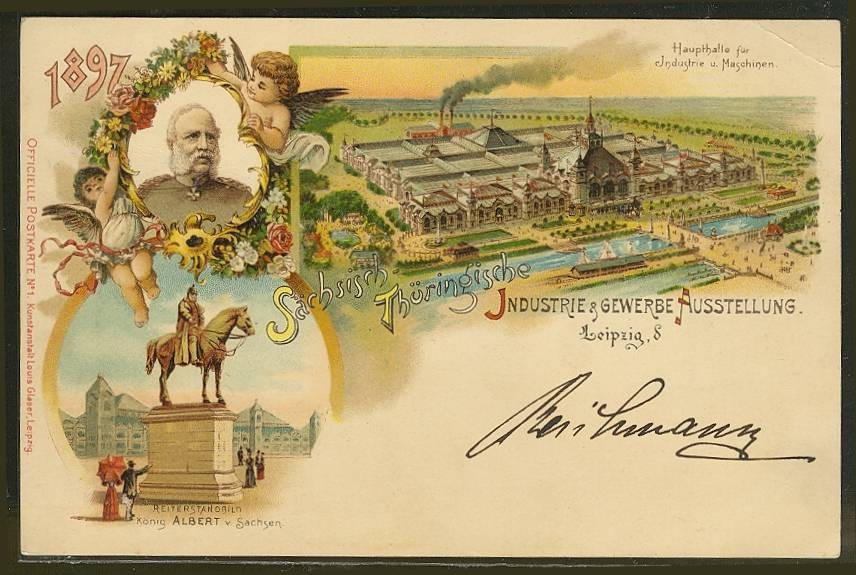 1897
Haupthalle für
Industrie u. Maschinen.
Sächsisch-
Thüringische
INDUSTRIE & GEWERBE AUSSTELLUNG.
Leipzig, d
REITERSTANDBILD
König ALBERT v. Sachsen.
OFFICIELLE POSTKARTE No 1. Kunstanstalt Louis Glaser, Leipzig.